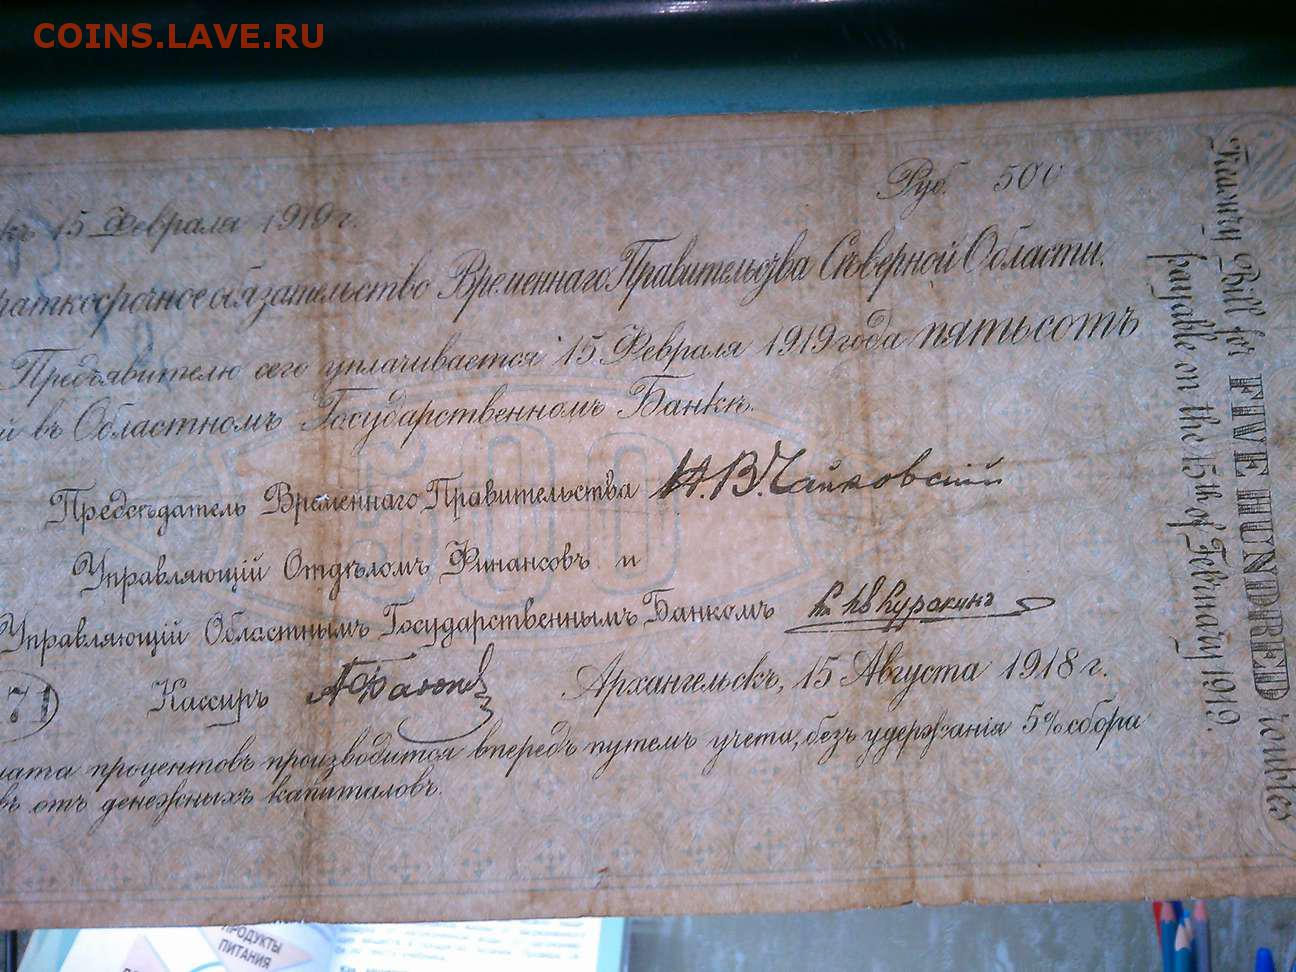 COINS.LAVE.RU
Руб. 500
къ 15 Февраля 1919 г.
раткосрочное обязательство Временнаго Правительства Сѣверной Области.
Предъявителю сего уплачивается 15 Февраля 1919 года пятьсотъ
й въ Областномъ Государственномъ Банкѣ.
500
Предсѣдатель Временнаго Правительства Н.В.Чайковскій
Управляющій Отдѣломъ Финансовъ и
Управляющій Областнымъ Государственнымъ Банкомъ Куракинъ
71
Кассиръ
Архангельскъ, 15 Августа 1918 г.
лата процентовъ производится впередъ путемъ учета, безъ удержанія 5% сбора
въ отъ денежныхъ капиталовъ.
Treasury Bill for FIVE HUNDRED roubles
payable on the 15th of February 1919.
ПРОДУКТЫ
ПИТАНИЯ